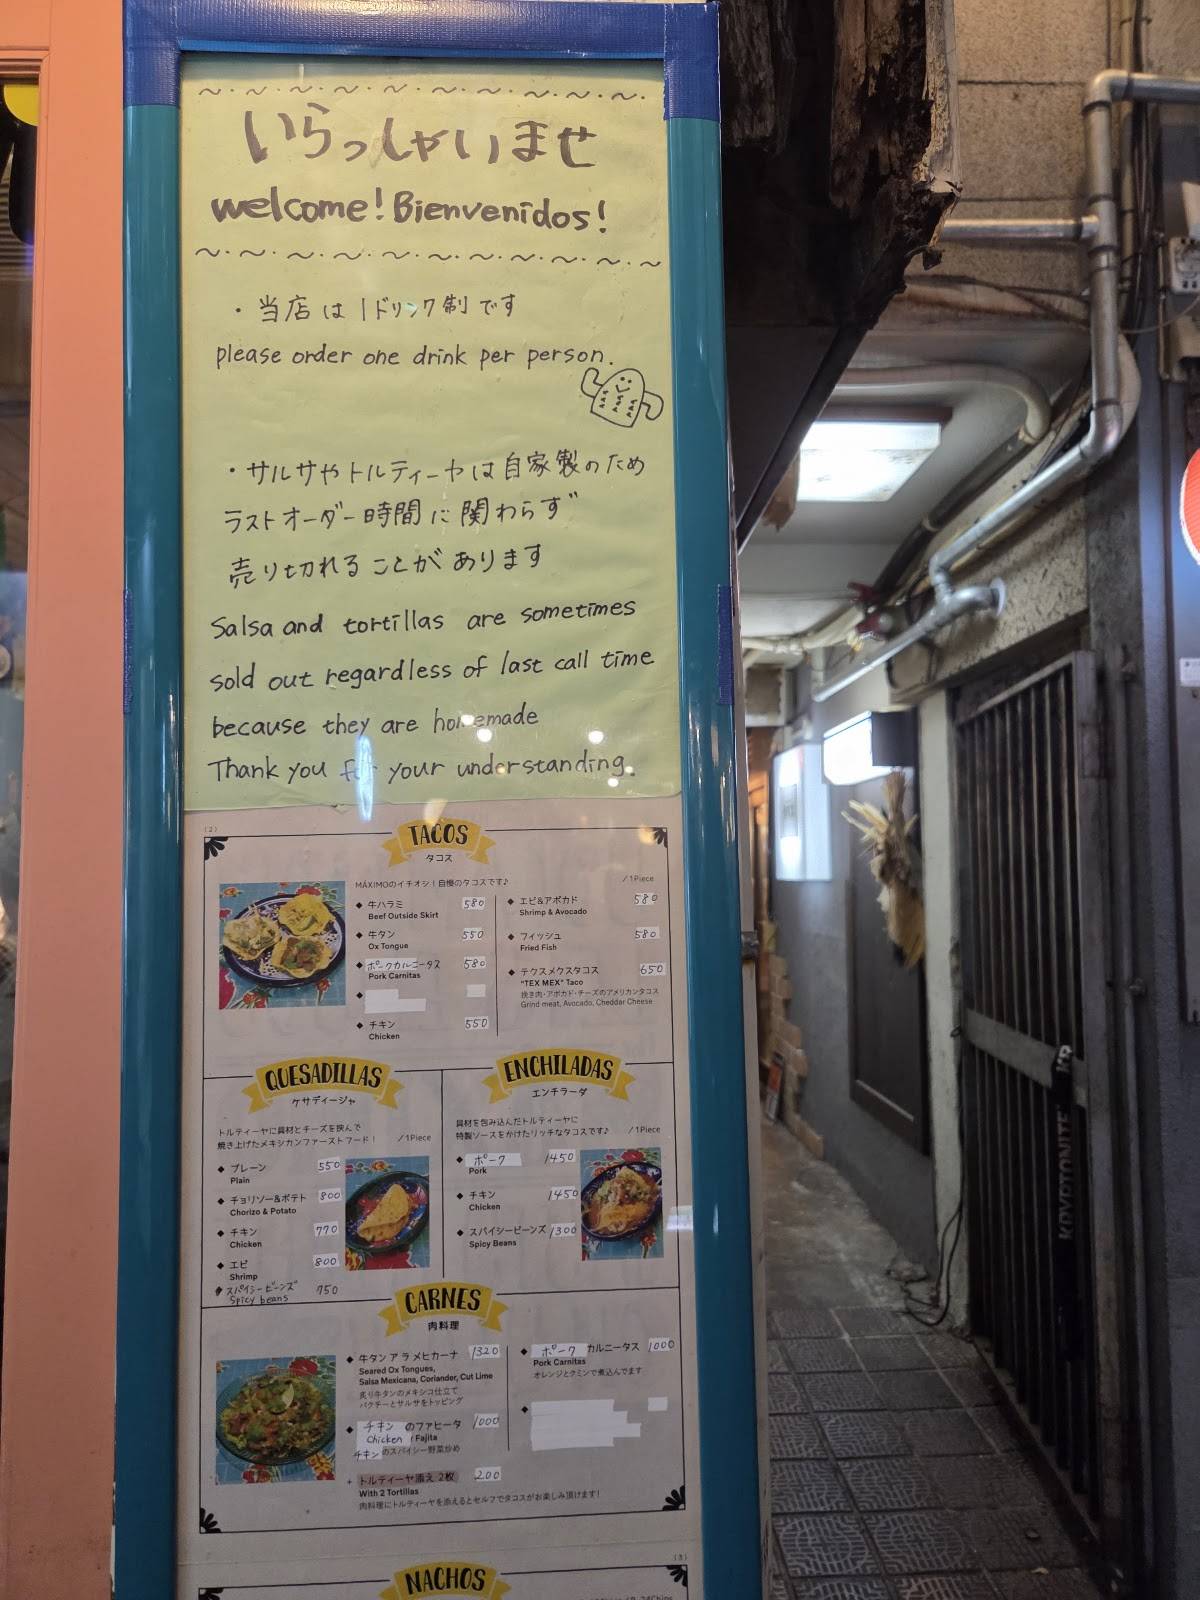 いらっしゃいませ
welcome! Bienvenidos!
・当店は1ドリンク制です
please order one drink per person.
・サルサやトルティーヤは自家製のため
ラストオーダー時間に関わらず
売り切れることがあります
Salsa and tortillas are sometimes
sold out regardless of last call time
because they are homemade
Thank you for your understanding.
(2)
TACOS
タコス
MÁXIMOのイチオシ!自慢のタコスです♪ /1Piece
◆ 牛ハラミ 580
Beef Outside Skirt
◆ 牛タン 550
Ox Tongue
◆ ポークカルニータス 580
Pork Carnitas
◆
◆ チキン 550
Chicken
◆ エビ&アボカド 580
Shrimp & Avocado
◆ フィッシュ 580
Fried Fish
◆ テクスメクスタコス 650
"TEX MEX" Taco
挽き肉・アボカド・チーズのアメリカンタコス
Grind meat, Avocado, Cheddar Cheese
QUESADILLAS
ケサディージャ
トルティーヤに具材とチーズを挟んで
焼き上げたメキシカンファーストフード! /1Piece
◆ プレーン 550
Plain
◆ チョリソー&ポテト 800
Chorizo & Potato
◆ チキン 770
Chicken
◆ エビ 800
Shrimp
◆ スパイシービーンズ 750
Spicy beans
ENCHILADAS
エンチラーダ
具材を包み込んだトルティーヤに
特製ソースをかけたリッチなタコスです♪ /1Piece
◆ ポーク 1450
Pork
◆ チキン 1450
Chicken
◆ スパイシービーンズ 1300
Spicy Beans
CARNES
肉料理
◆ 牛タン ア ラ メヒカーナ 1320
Seared Ox Tongues,
Salsa Mexicana, Coriander, Cut Lime
炙り牛タンのメキシコ仕立て
パクチーとサルサをトッピング
◆ チキン のファヒータ 1000
Chicken Fajita
チキンのスパイシー野菜炒め
+ トルティーヤ添え 2枚 200
With 2 Tortillas
肉料理にトルティーヤを添えるとセルフでタコスがお楽しみ頂けます!
◆ ポーク カルニータス 1000
Pork Carnitas
オレンジとクミンで煮込んでます
◆
(3)
NACHOS
KRYPTONITE